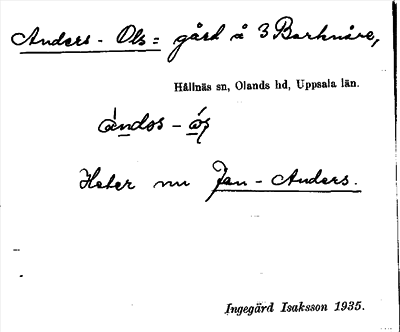 Anders - Ols = gård å 3 Barknåre,
Hållnäs sn, Olands hd, Uppsala län.
ándos - ós
Heter nu Jan - Anders.
Ingegärd Isaksson 1935.